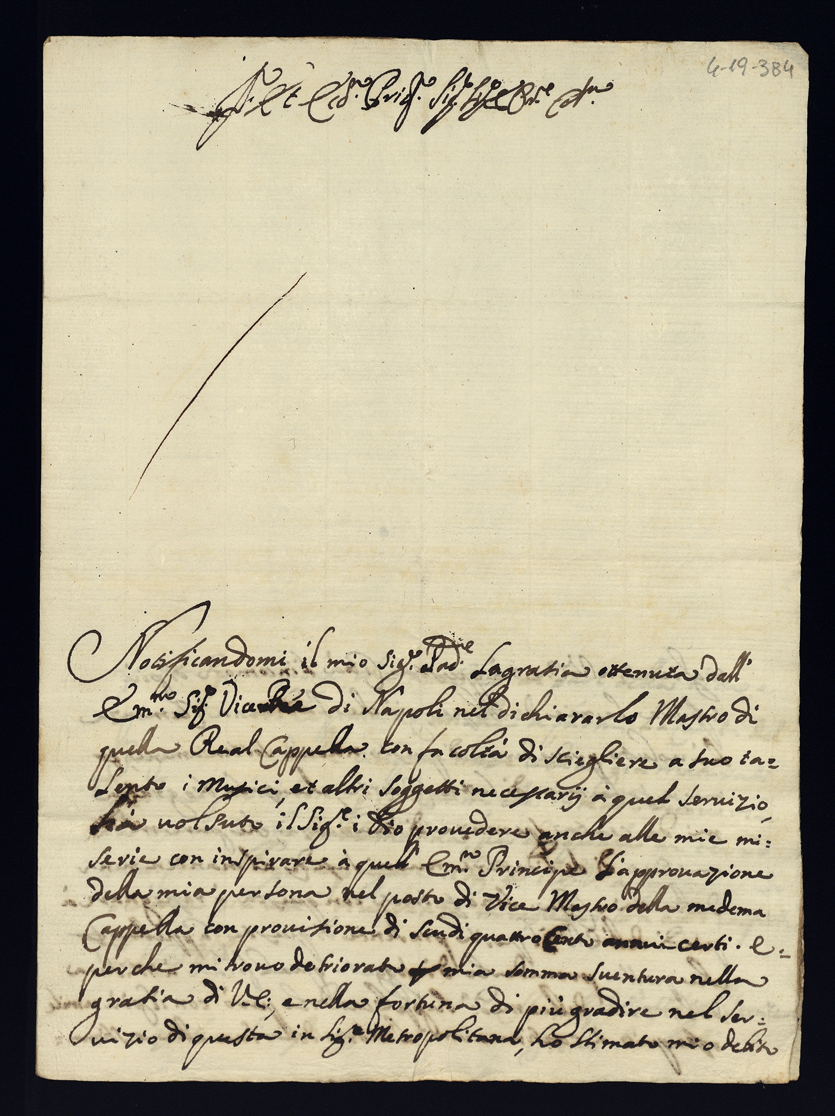 4-19-384
Notificandomi il mio Sig.r Pad.e la gratia ottenuta dall'
Em.mo Sig.r Vice Rè di Napoli nel dichiararlo Mastro di
quella Real Cappella con facoltà di sciegliere a suo ta=
lento i Musici, et altri soggetti necessarij à quel servizio,
hà volsuto il Sig.e i Dio provedere anche alle mie mi:
serie con inspirare à quell' Em.mo Principe l'approvazione
della mia persona nel posto di Vice Mastro della medema
Cappella con provisione di scudi quattro Cento annui certi. e=
perche mi trovo detriorato mia somma sventura nella
gratia di V.E:, e nella fortuna di più gradire nel ser:
vizio di questa in Sig.e Metropolitana, hò stimato mio debito